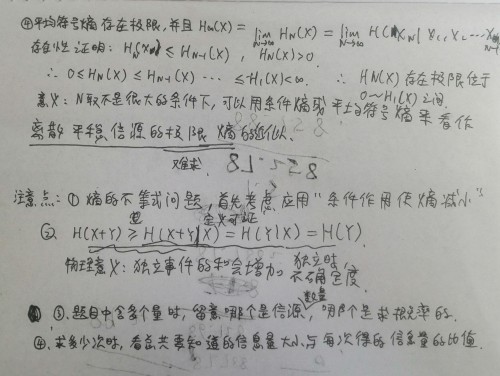 ④平均符号熵存在极限,并且 H∞(X) = lim N→∞ HN(X) = lim N→∞ H(XN|X1,X2,…XN-1)
存在性证明: HN(X) ≤ HN-1(X) , HN(X)>0.
∴ 0≤HN(X)≤HN-1(X) … ≤H1(X)<∞. ∴ HN(X)存在极限位于 0~H1(X)之间.
意义: N取不是很大的条件下,可以用条件熵或平均符号熵来看作
离散平稳信源的极限熵的近似.
难求.
注意点: ①熵的不等式问题,首先考虑应用"条件作用使熵减小"
② H(X+Y) ≥ H(X+Y|X) = H(Y|X) = H(Y). 定义可证 独立时
物理意义: 独立事件的和会增加不确定度.
③. 题目中含多个量时,留意哪个是信源,哪个是求概率的. 数量
④. 求多少次时,看总共要知道的信息量大小与每次得的信息量的比值.